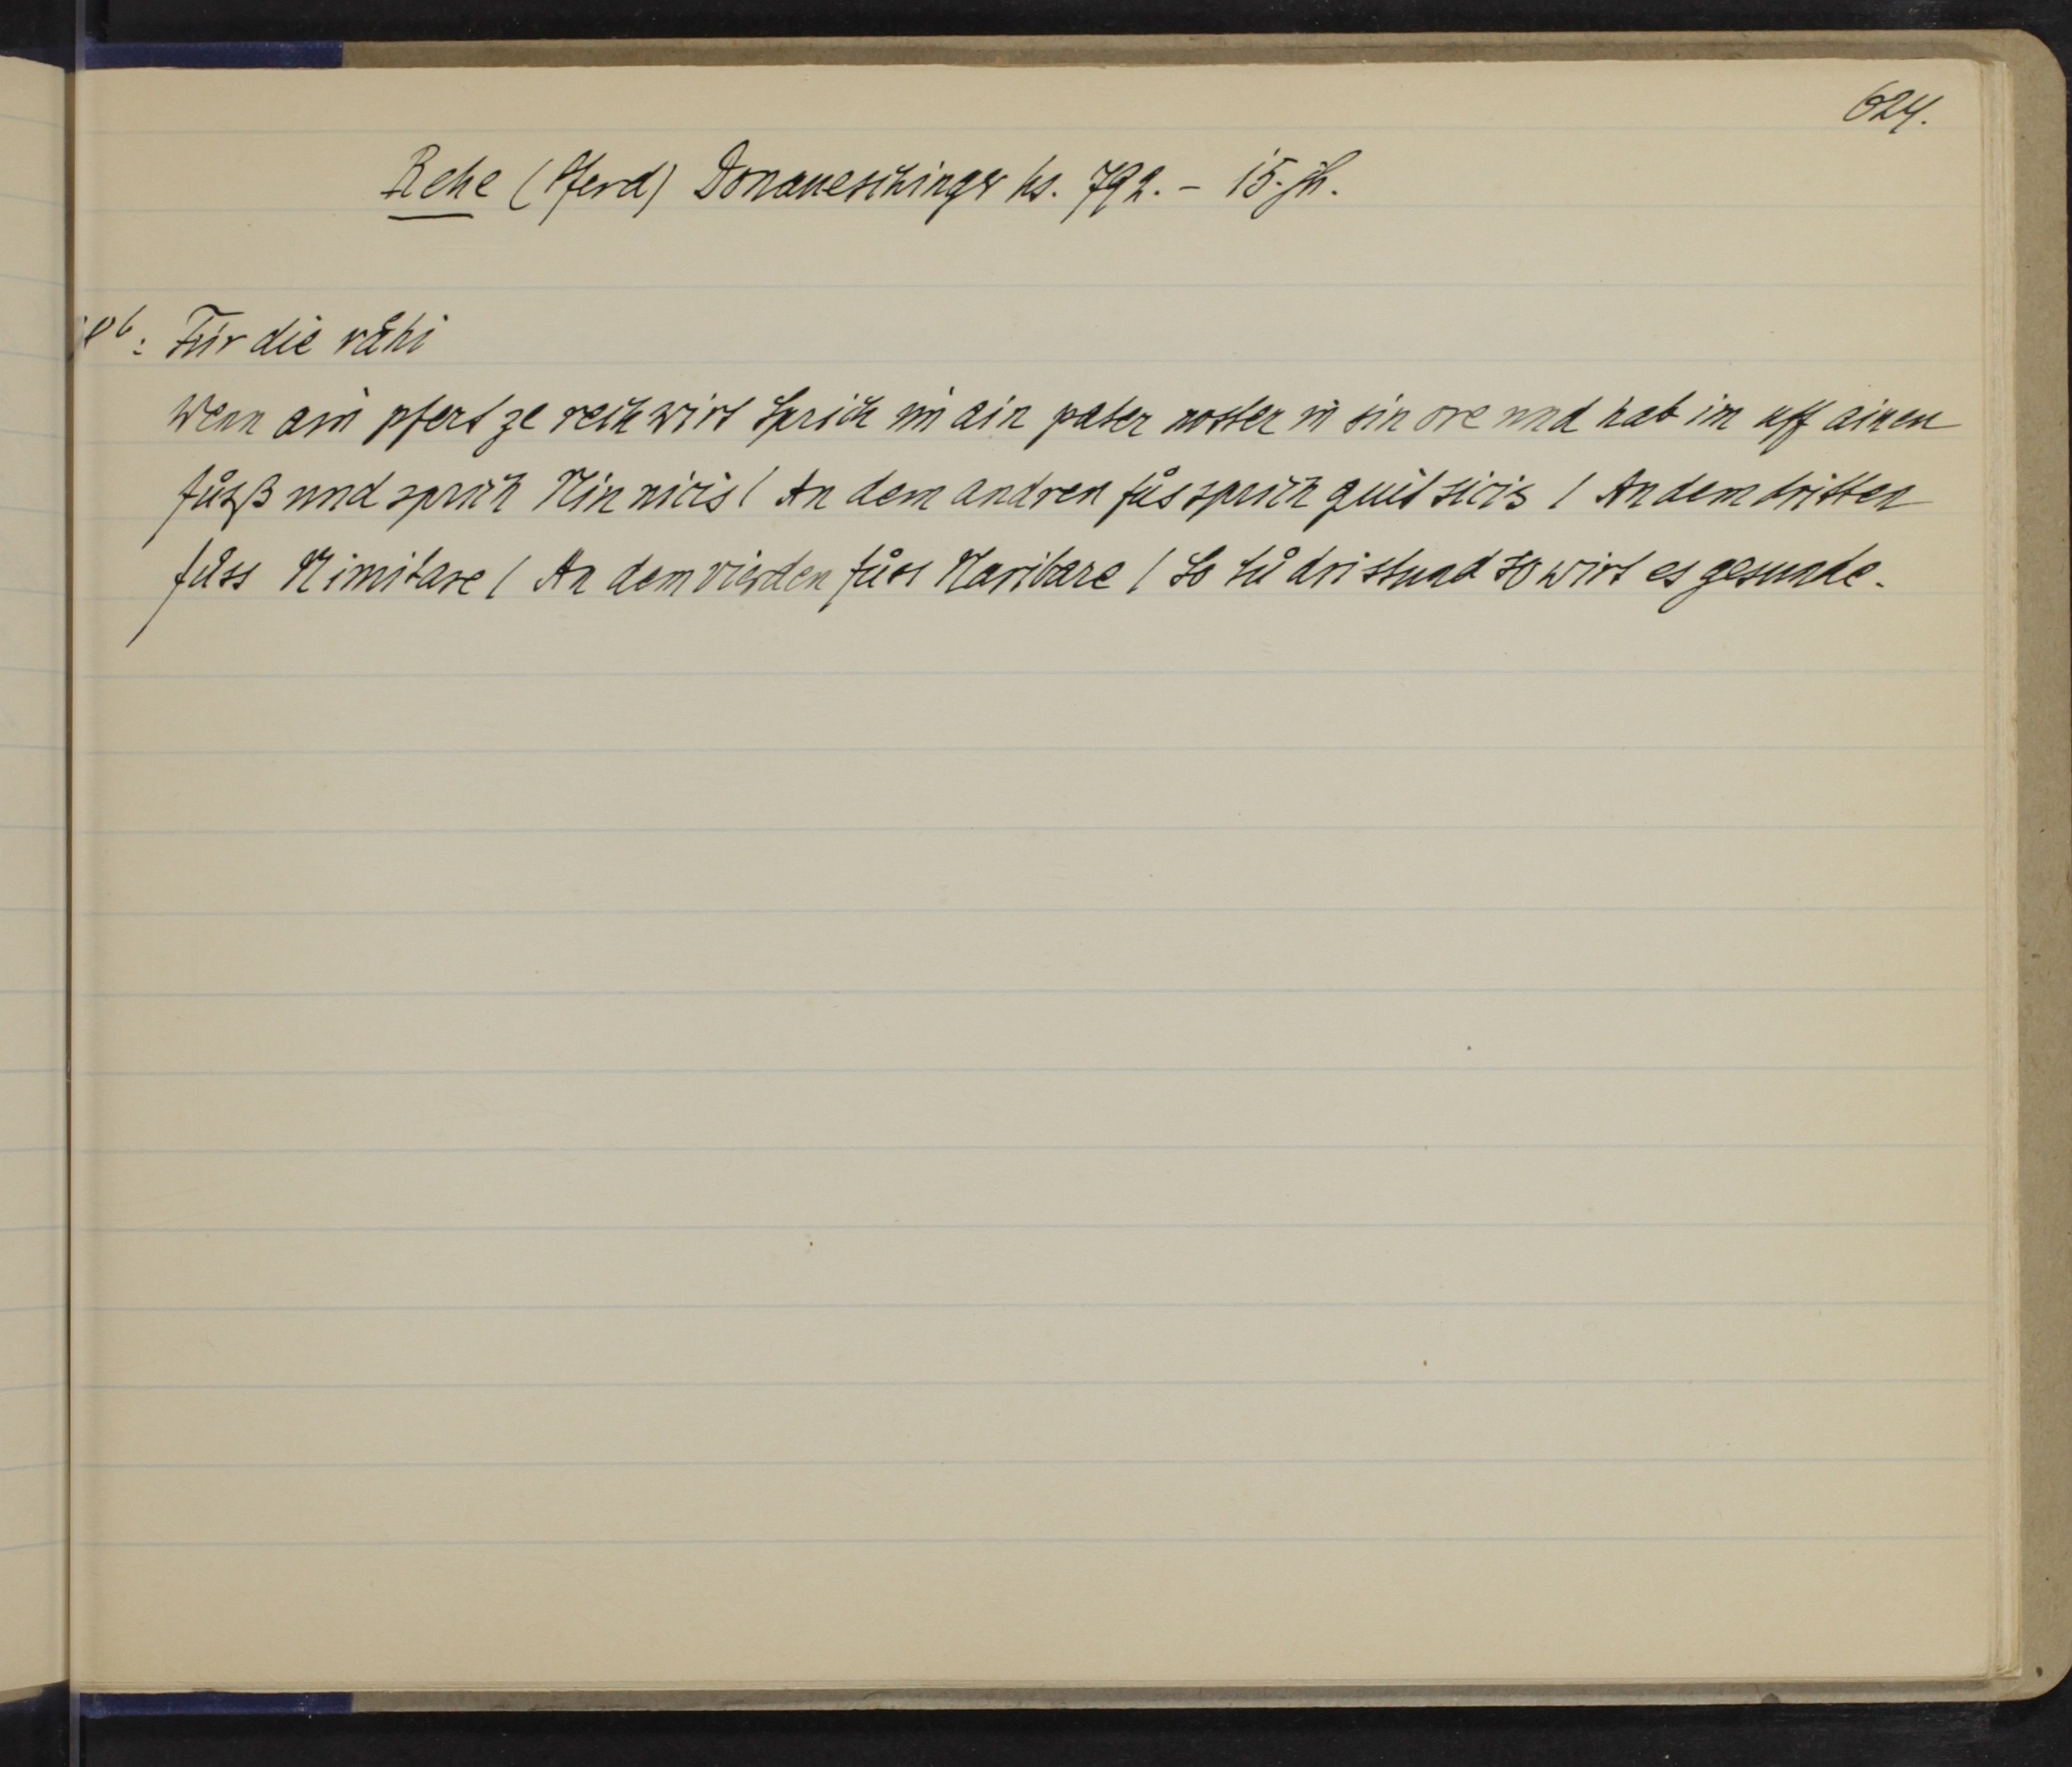 624.
Rehe (Pferd) Donaueschinger hs. 792. – 15. jh.
b: Für die råhi
Wenn ain pfert ze rech wirt Sprich im ain pater noster in sin ore und hab im uff ainen
fůsß und sprich Nin nicis / An dem andren fůs sprich quit sicis / An dem dritten
fůss Nimitare / An dem vierden fůss Naribare / So tů dristund so wirt es gesunde.